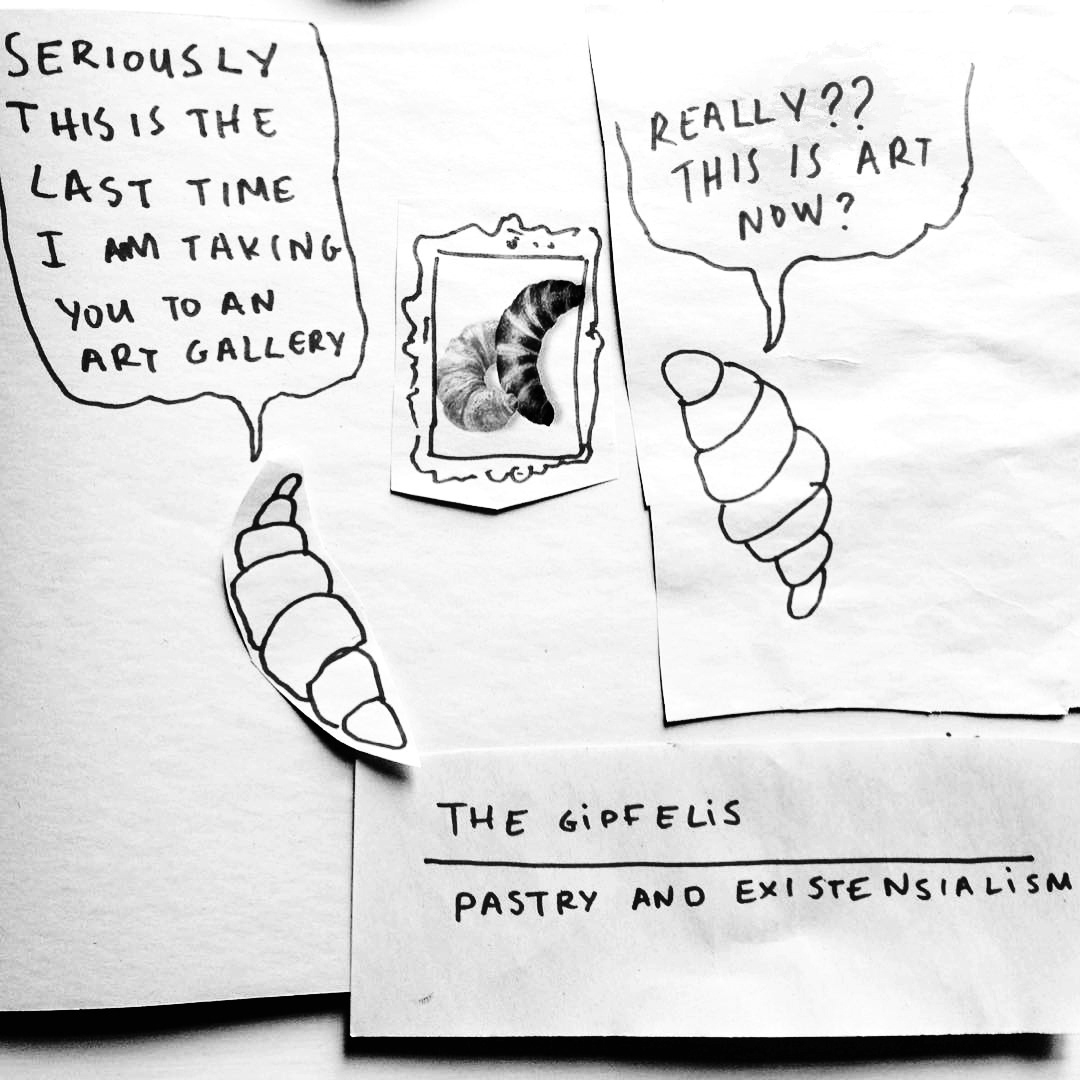 SERIOUSLY
THIS IS THE
LAST TIME
I AM TAKING
YOU TO AN
ART GALLERY
REALLY??
THIS IS ART
NOW?
THE GiPFELiS
PASTRY AND EXISTENSIALiSM